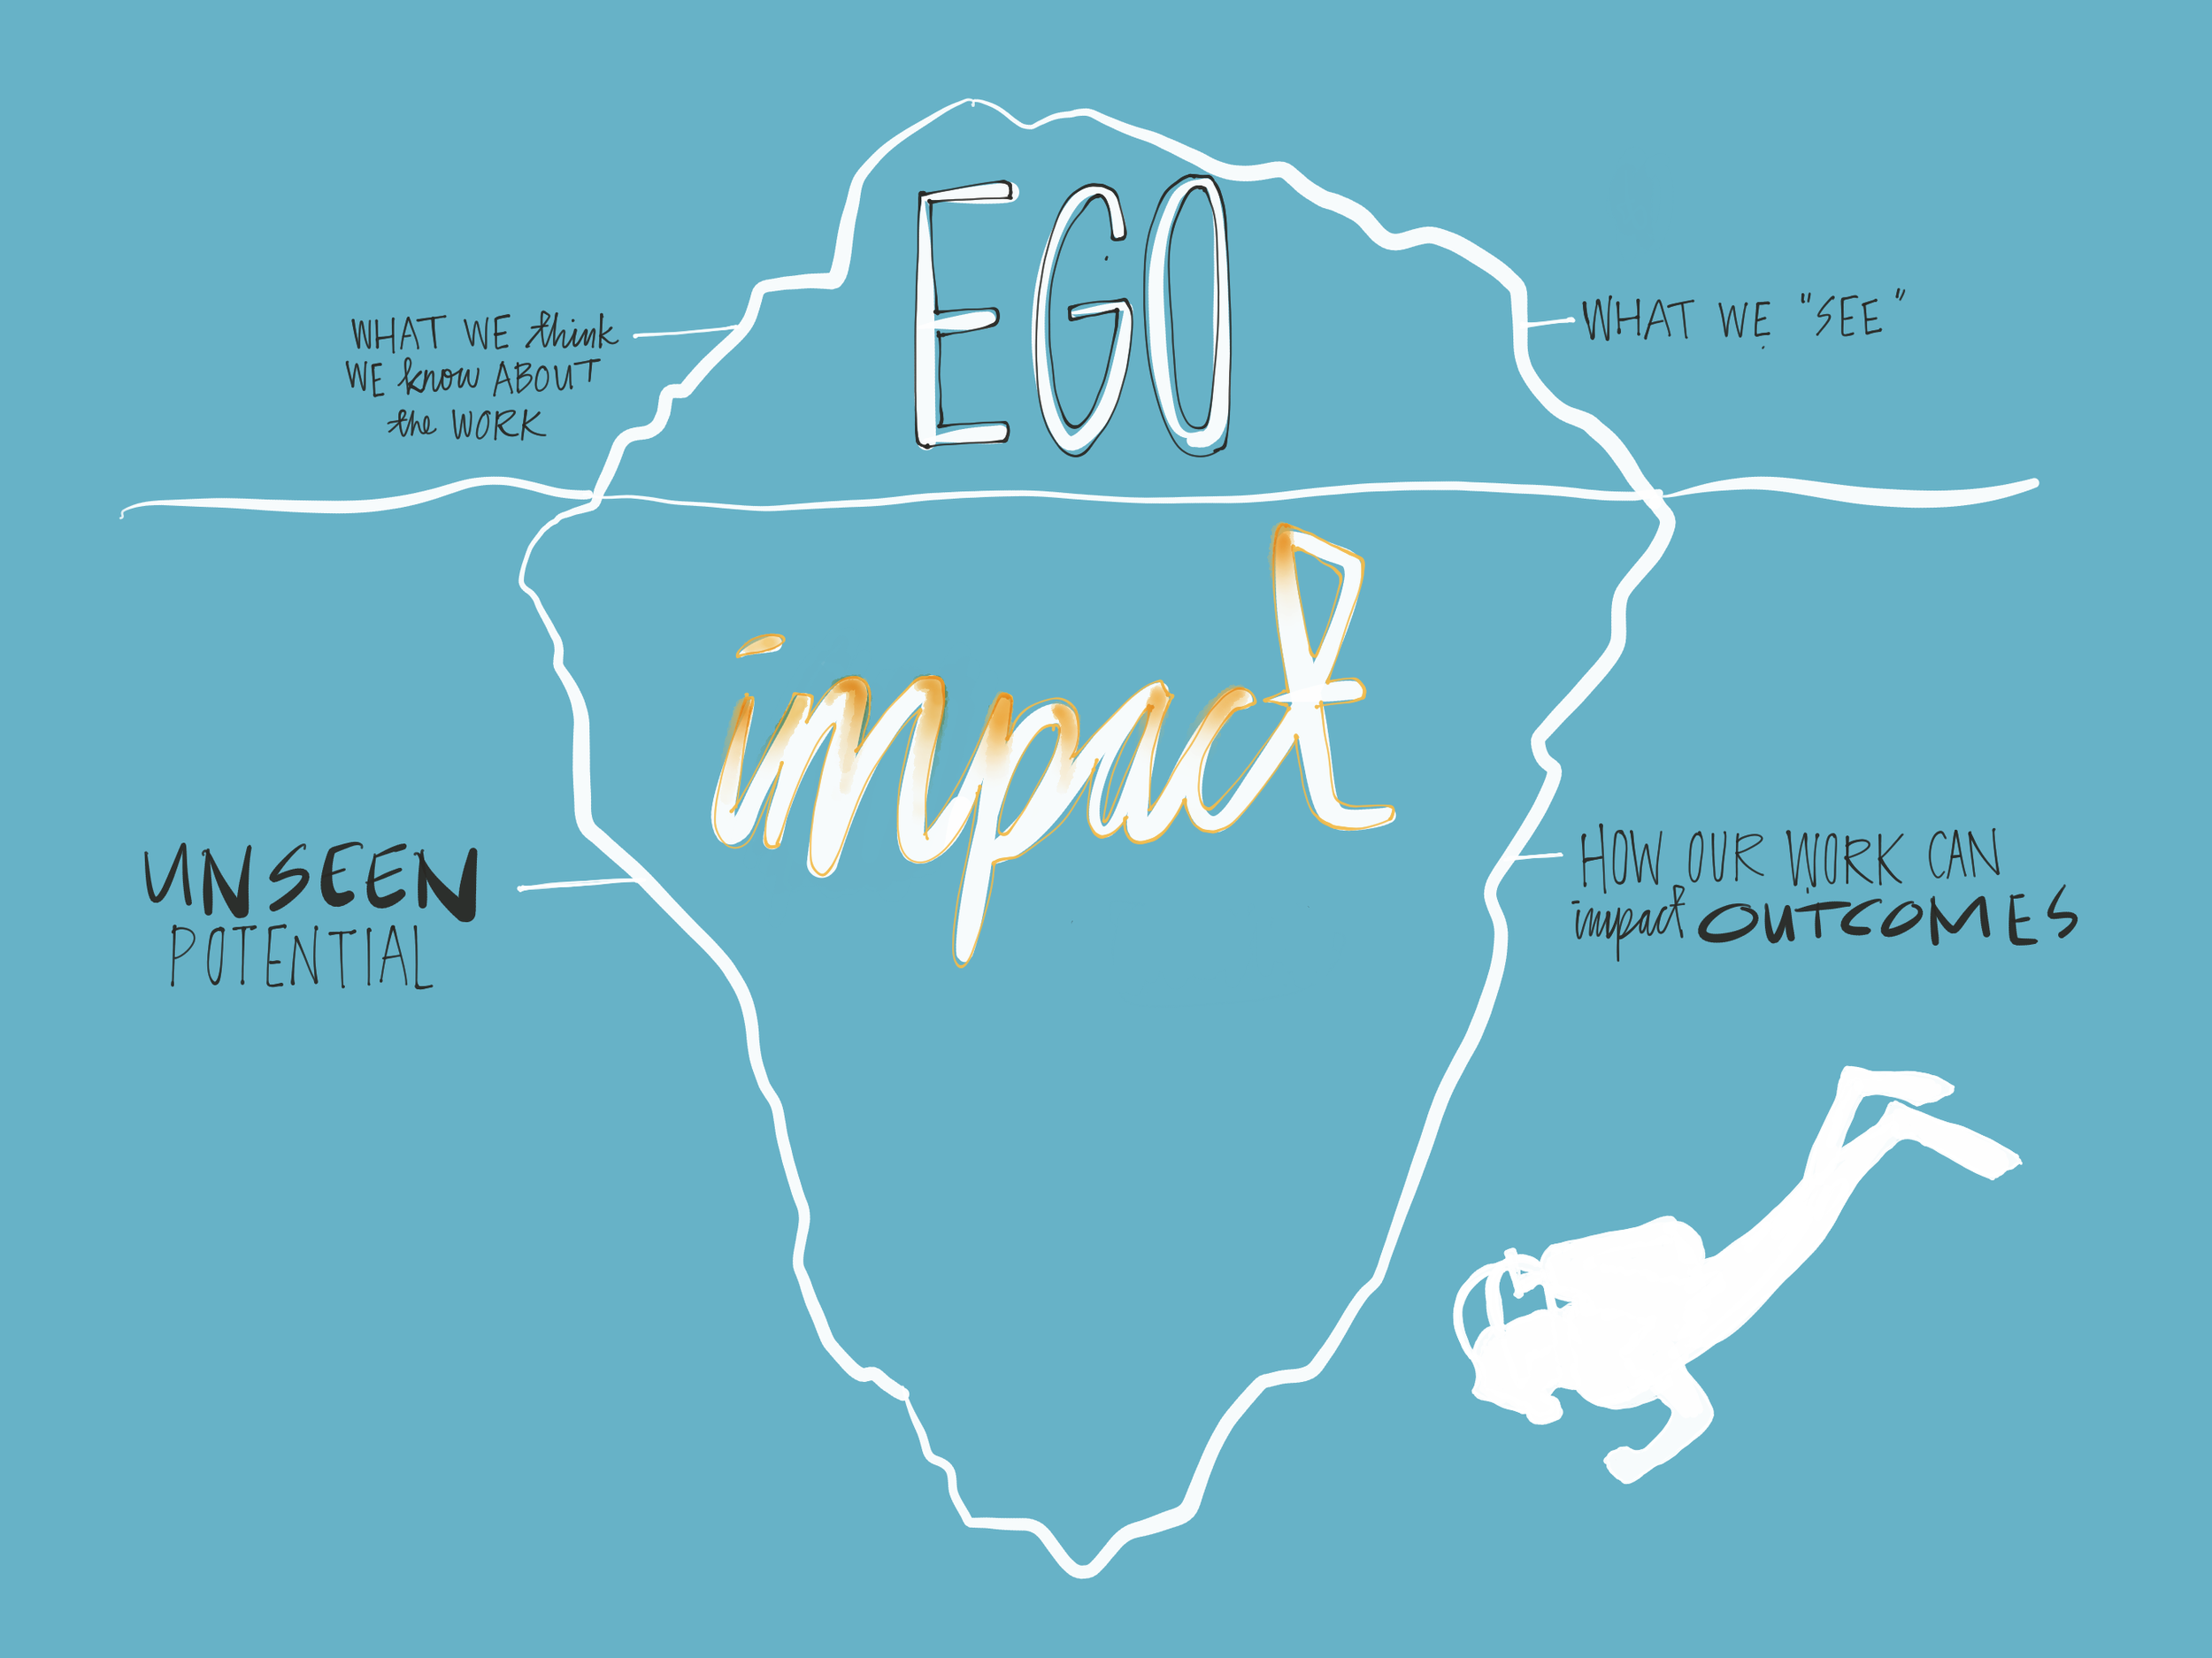 EGO
WHAT WE think
WE know ABOUT
the WORK
WHAT WE "SEE"
impact
UNSEEN
POTENTIAL
HOW OUR WORK CAN
impact OUTCOMES